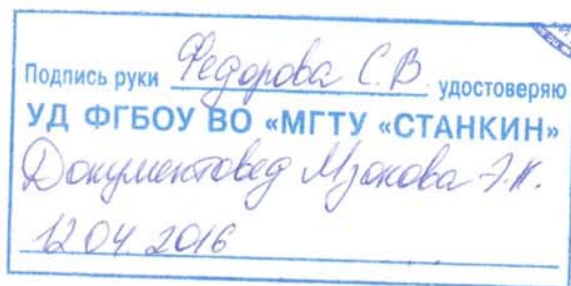 Подпись руки Федорова С.В. удостоверяю
УД ФГБОУ ВО «МГТУ «СТАНКИН»
Документовед Мзокова Э.К.
12.04.2016